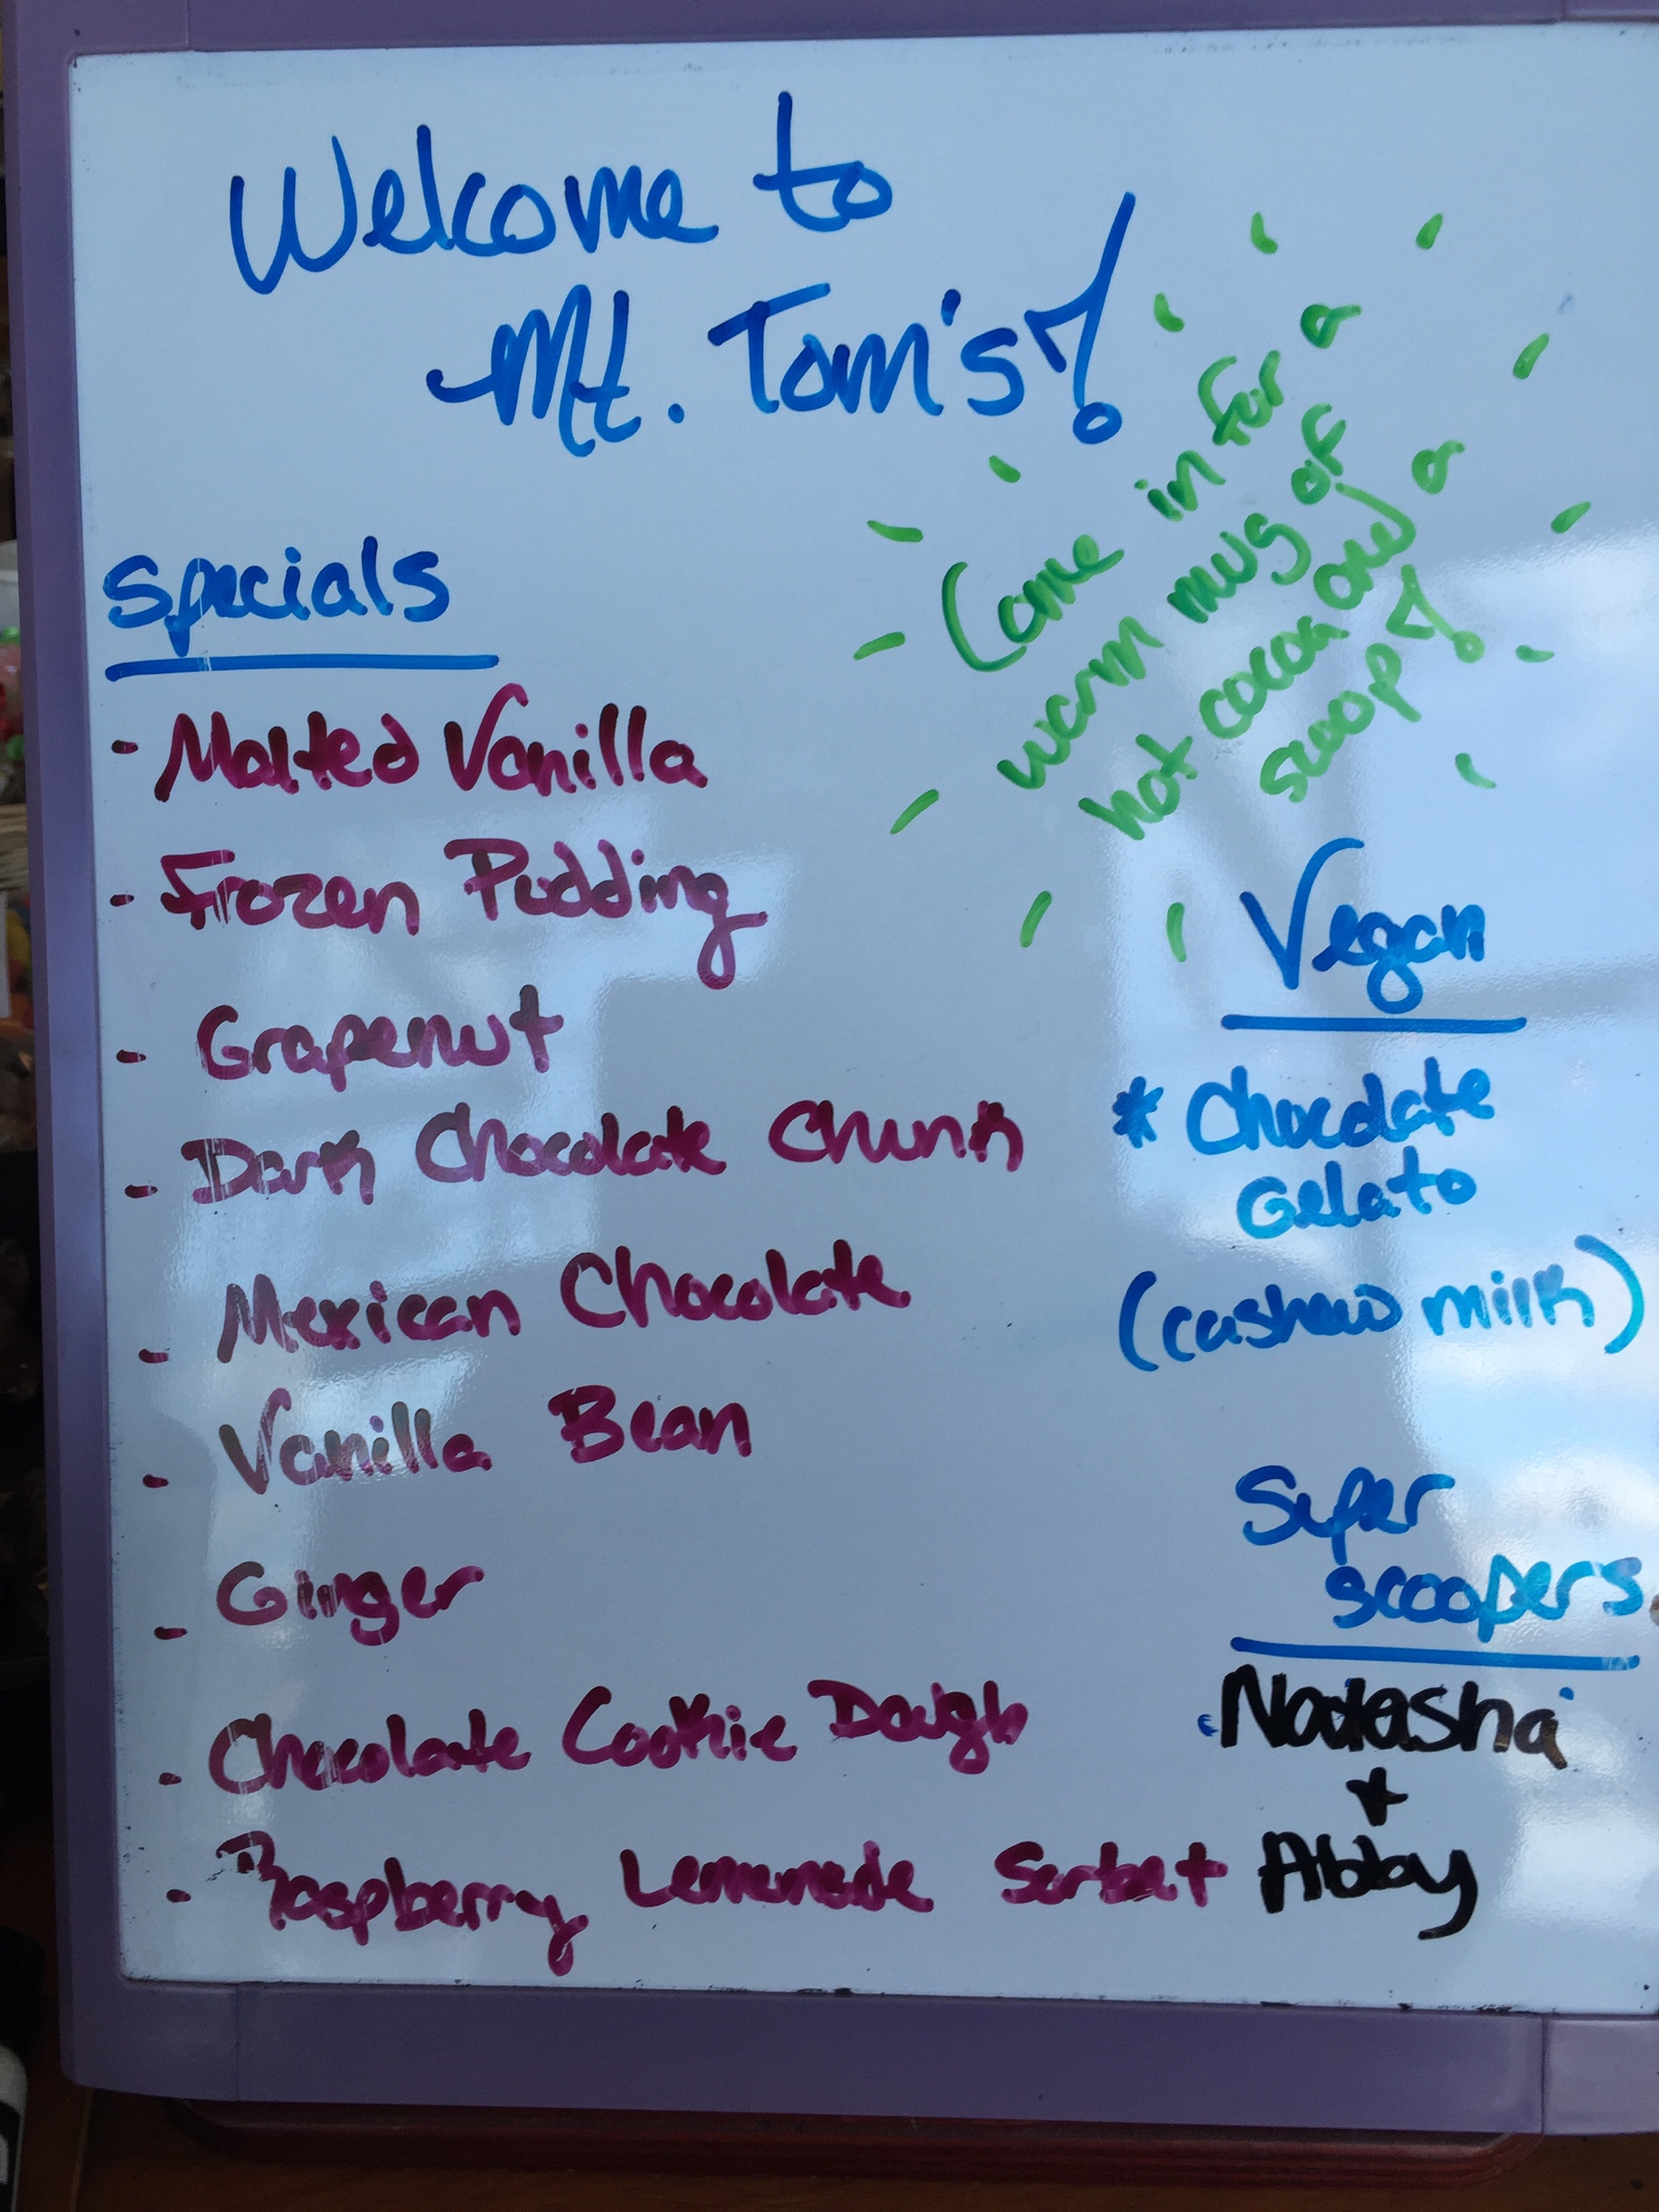 Welcome to
Mt. Tom's!
Come in for a
warm mug of
hot cocoa and a
scoop!
Specials
- Malted Vanilla
- Frozen Pudding
- Grapenut
- Dark Chocolate Chunk
- Mexican Chocolate
- Vanilla Bean
- Ginger
- Chocolate Cookie Dough
- Raspberry Lemonade Sorbet
Vegan
* Chocolate
Gelato
(cashew milk)
Super
scoopers
Natasha
+
Abby